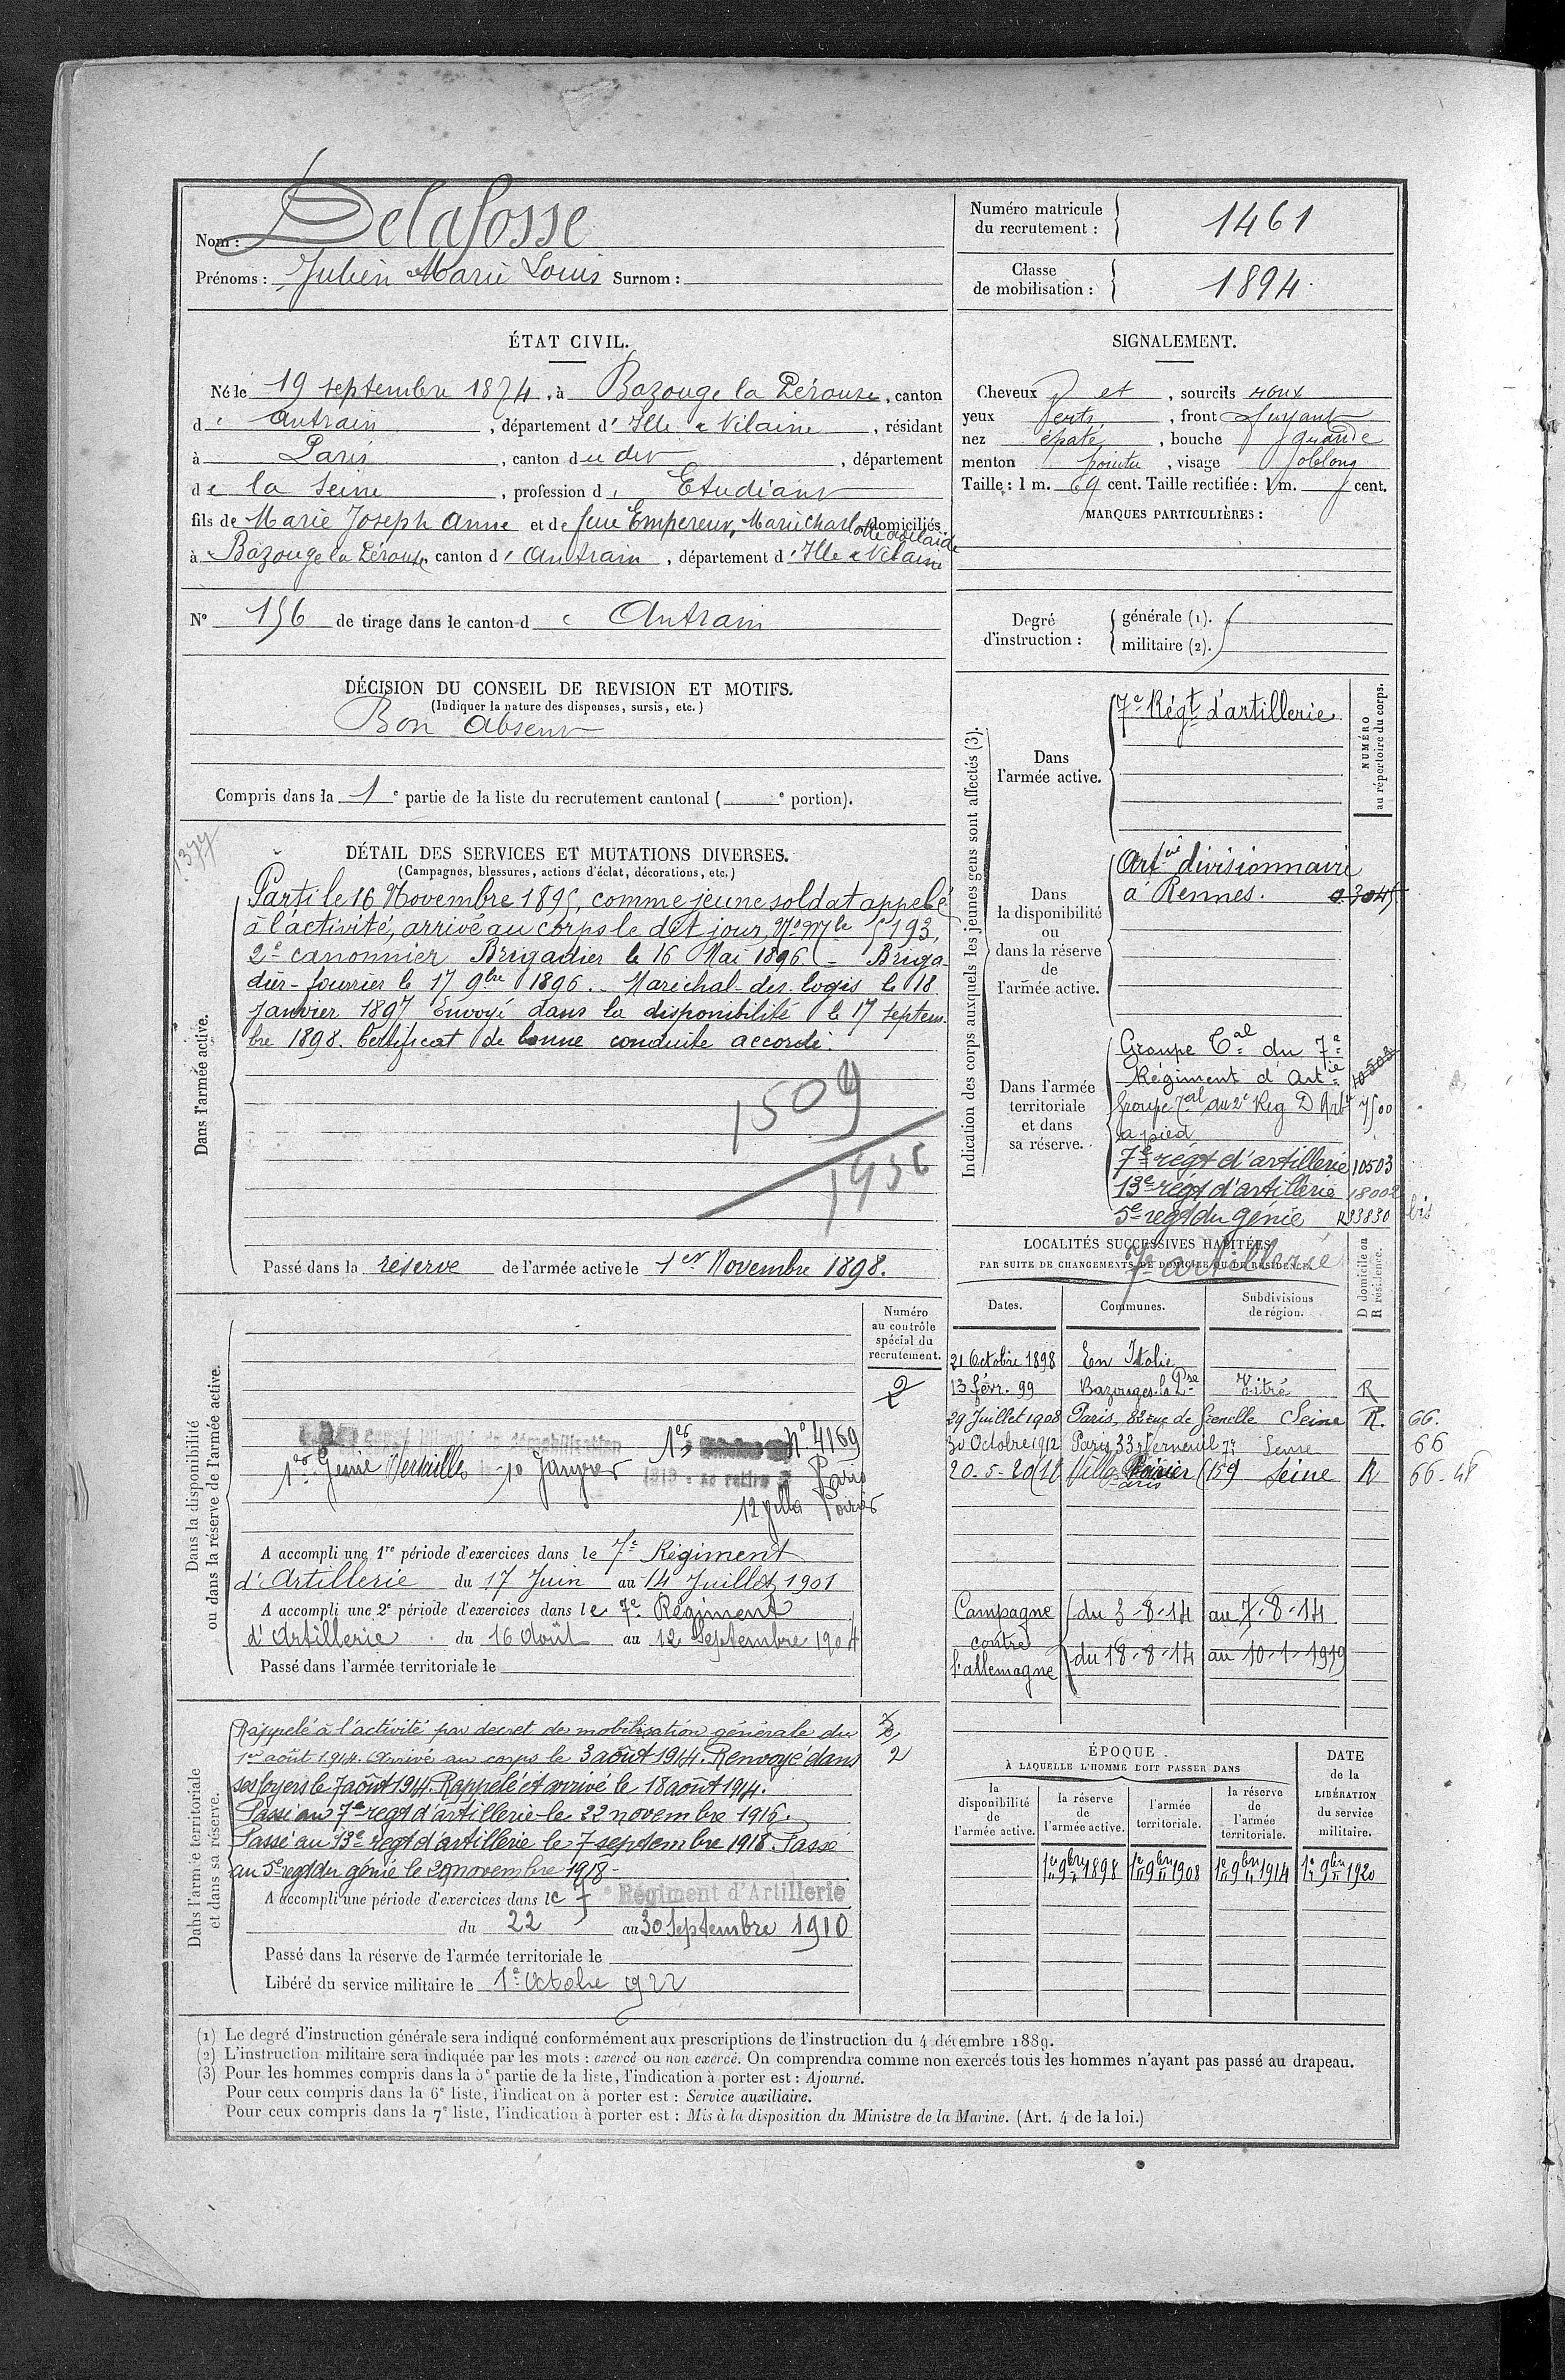 Nom : Delafosse
Prénoms : Julien Marie Louis Surnom :
Numéro matricule du recrutement : 1461
Classe de mobilisation : 1894
ÉTAT CIVIL.
Né le 19 septembre 1874, à Bazouge la Pérouse, canton
d' Antrain, département d' Ille & Vilaine, résidant
à Paris, canton du dit, département
de la Seine, profession d' Etudiant
fils de Marie Joseph Anne et de feue Empereur, Marie Charlotte Adelaïde domiciliés
à Bazouge la Pérouse, canton d' Antrain, département d' Ille & Vilaine
N° 156 de tirage dans le canton d' Antrain
SIGNALEMENT.
Cheveux et, sourcils roux
yeux verts, front fuyant
nez épaté, bouche grande
menton pointu, visage oblong
Taille : 1 m. 69 cent. Taille rectifiée : 1 m. cent.
MARQUES PARTICULIÈRES :
Degré d'instruction : générale (1). militaire (2).
DÉCISION DU CONSEIL DE REVISION ET MOTIFS.
(Indiquer la nature des dispenses, sursis, etc.)
Bon Absent
Compris dans la 1e partie de la liste du recrutement cantonal ( e portion).
1377
DÉTAIL DES SERVICES ET MUTATIONS DIVERSES.
(Campagnes, blessures, actions d'éclat, décorations, etc.)
Dans l'armée active.
Parti le 16 Novembre 1895, comme jeune soldat appelé
à l'activité, arrivé au corps le dit jour, N° Mle 5193,
2e canonnier Brigadier le 16 Mai 1896. - Briga-
dier-fourrier le 17 9bre 1896. - Maréchal-des-logis le 18
janvier 1897 Envoyé dans la disponibilité le 17 septem-
bre 1898. Certificat de bonne conduite accordé.
1509
1936
Passé dans la réserve de l'armée active le 1er Novembre 1898.
Indication des corps auxquels les jeunes gens sont affectés (3).
NUMÉRO au répertoire du corps.
Dans l'armée active.
7e Régt d'artillerie
Dans la disponibilité ou dans la réserve de l'armée active.
Artie divisionnaire
à Rennes. 03045
Dans l'armée territoriale et dans sa réserve.
Groupe Tal du 7e
Régiment d'Artie 10503
Groupe Tal du 2e Reg D'Artie 7500
à pied
7e régt d'artillerie 10503
13e régt d'artillerie 18002
5e regt du génie R33830 bis
7e artillerie
LOCALITÉS SUCCESSIVES HABITÉES
PAR SUITE DE CHANGEMENTS DE DOMICILE OU DE RÉSIDENCE.
Dates. Communes. Subdivisions de région. D domicile ou R résidence.
21 Octobre 1898 En Italie
13 févr. 99 Bazouges-la-Pse Vitré R
29 Juillet 1908 Paris, 82 rue de Grenelle Seine R. 66.
30 Octobre 1912 Paris 33 r Verneuil 7e Seine 66
20-5-20 12 Villa Poirier (15e) Seine R 66-48
Paris
Campagne du 3-8-14 au 7-8-14
contre
l'allemagne du 18-8-14 au 10-1-1919
Dans la disponibilité ou dans la réserve de l'armée active.
Numéro au contrôle spécial du recrutement.
2
démobilisation N° 4169
1er Génie Versailles 10 Janvier 1919 se retire à Paris
12 villa Poirier
A accompli une 1re période d'exercices dans le 7e Régiment
d'Artillerie du 17 Juin au 14 Juillet 1901
A accompli une 2e période d'exercices dans le 7e Régiment
d'Artillerie du 16 Août au 12 Septembre 1904
Passé dans l'armée territoriale le
Dans l'armée territoriale et dans sa réserve.
Rappelé à l'activité par décret de mobilisation générale du
1er août 1914. Arrivé au corps le 3 août 1914. Renvoyé dans
ses foyers le 7 août 1914. Rappelé et arrivé le 18 août 1914.
Passé au 7e regt d'artillerie le 22 novembre 1916.
Passé au 13e regt d'artillerie le 7 septembre 1918. Passé
au 5e regt du génie le 29 novembre 1918-
2
A accompli une période d'exercices dans le 7e Régiment d'Artillerie
du 22 au 30 Septembre 1910
Passé dans la réserve de l'armée territoriale le
Libéré du service militaire le 1er Octobre 1922
ÉPOQUE
À LAQUELLE L'HOMME DOIT PASSER DANS
la disponibilité de l'armée active. la réserve de l'armée active. l'armée territoriale. la réserve de l'armée territoriale.
DATE de la LIBÉRATION du service militaire.
1er 9bre 1898 1er 9bre 1908 1er 9bre 1914 1er 9bre 1920
(1) Le degré d'instruction générale sera indiqué conformément aux prescriptions de l'instruction du 4 décembre 1889.
(2) L'instruction militaire sera indiquée par les mots : exercé ou non exercé. On comprendra comme non exercés tous les hommes n'ayant pas passé au drapeau.
(3) Pour les hommes compris dans la 5e partie de la liste, l'indication à porter est : Ajourné.
Pour ceux compris dans la 6e liste, l'indication à porter est : Service auxiliaire.
Pour ceux compris dans la 7e liste, l'indication à porter est : Mis à la disposition du Ministre de la Marine. (Art. 4 de la loi.)